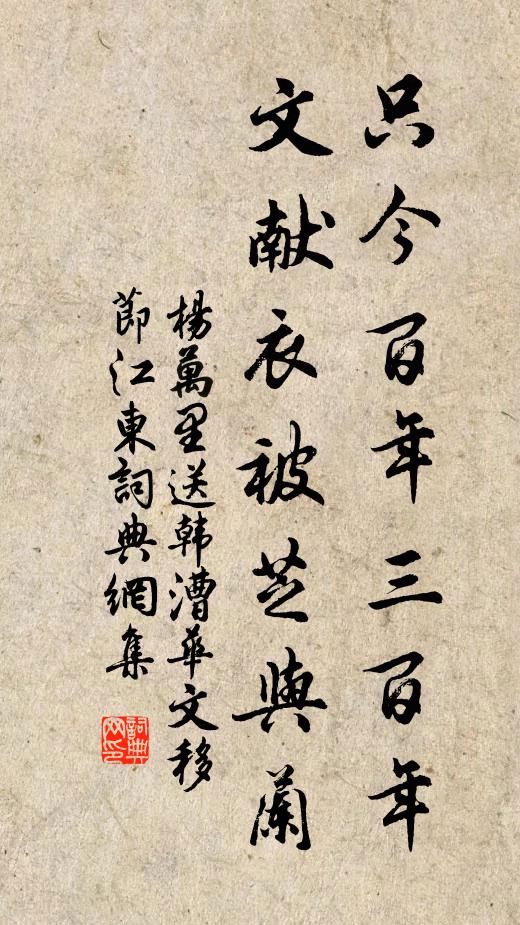 只今百年三百年
文献衣被芝與蘭
楊萬里送韩漕華文移
節江東詞典網集
詞典
网印